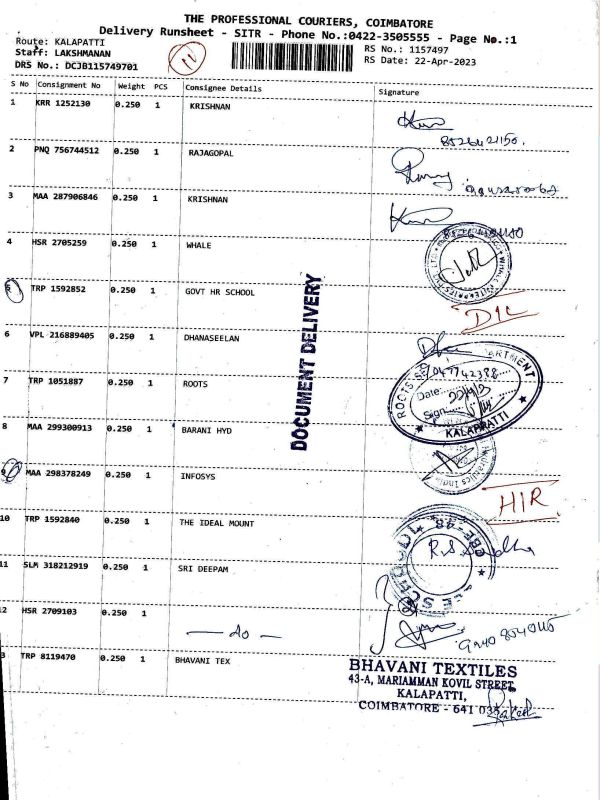 THE PROFESSIONAL COURIERS, COIMBATORE
Delivery Runsheet - SITR - Phone No.:0422-3505555 - Page No.:1
Route: KALAPATTI
Staff: LAKSHMANAN
DRS No.: DCJB115749701
11
RS No.: 1157497
RS Date: 22-Apr-2023
S No Consignment No Weight PCS Consignee Details Signature
1 KRR 1252130 0.250 1 KRISHNAN
2 PNQ 756744512 0.250 1 RAJAGOPAL
3 MAA 287906846 0.250 1 KRISHNAN
4 HSR 2705259 0.250 1 WHALE
5 TRP 1592852 0.250 1 GOVT HR SCHOOL D/L
6 VPL 216889405 0.250 1 DHANASEELAN
7 TRP 1051887 0.250 1 ROOTS
8 MAA 299300913 0.250 1 BARANI HYD
9 MAA 298378249 0.250 1 INFOSYS H/R
10 TRP 1592840 0.250 1 THE IDEAL MOUNT
11 SLM 318212919 0.250 1 SRI DEEPAM
12 HSR 2709103 0.250 1 — do —
3 TRP 8119470 0.250 1 BHAVANI TEX
DOCUMENT DELIVERY
Date:
Sign:
KALAPATTI
BHAVANI TEXTILES
43-A, MARIAMMAN KOVIL STREET,
KALAPATTI,
COIMBATORE - 641 035